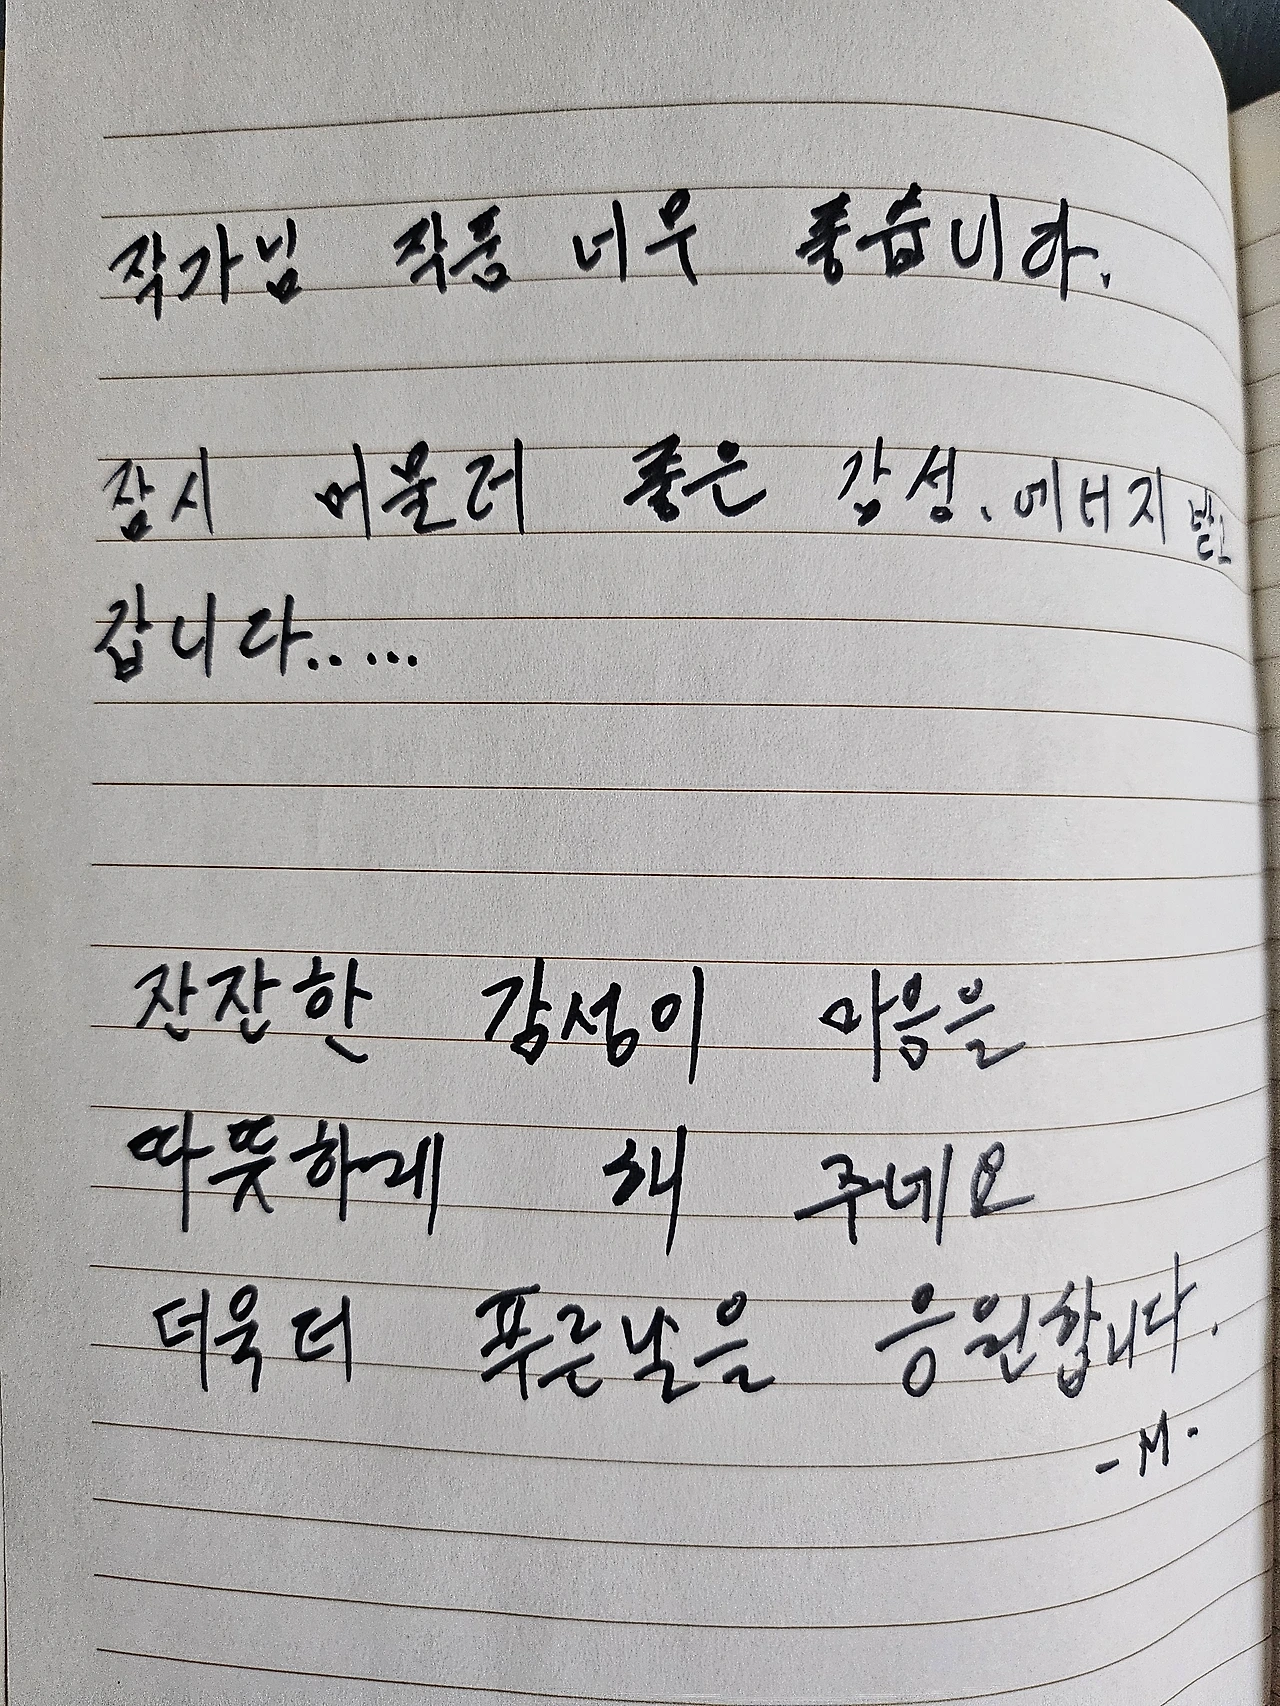 작가님 작품 너무 좋습니다.
잠시 머물러 좋은 감성. 에너지 받고
갑니다.....
잔잔한 감성이 마음을
따뜻하게 해 주네요
더욱더 푸른날을 응원합니다.
- M -